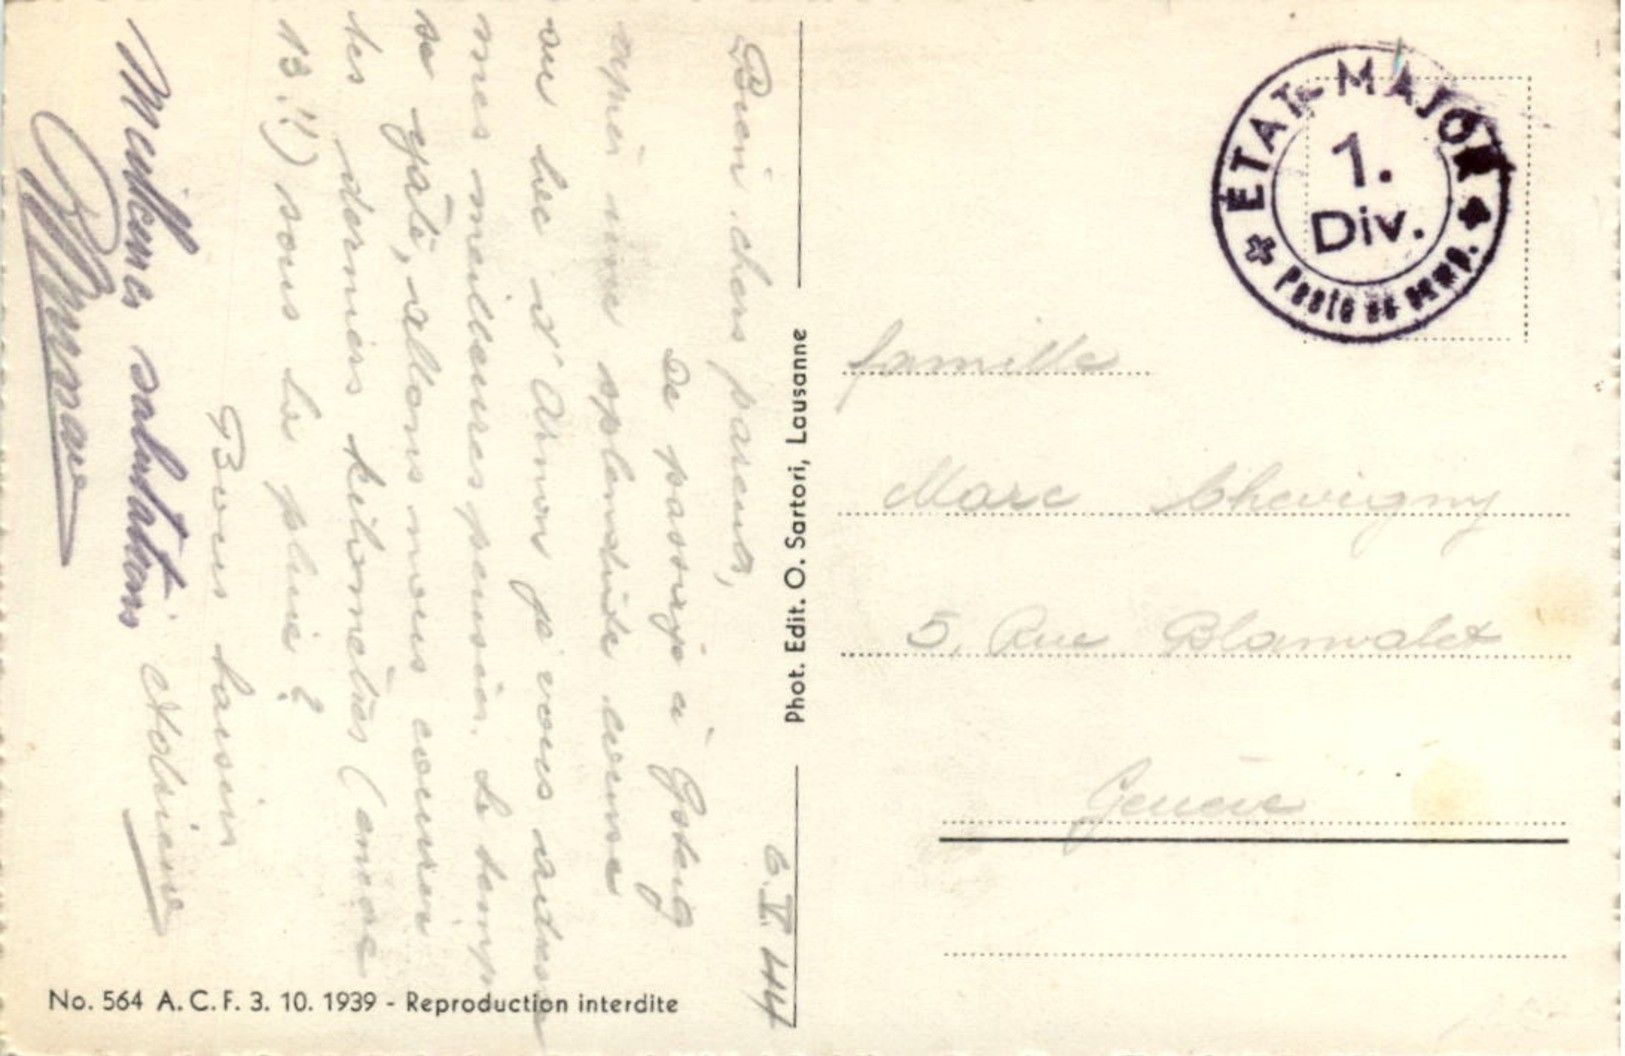 6.V.44
Bien chers parents,
De passage à Gsteig
après une splendide course
au lac d'Arnon je vous adresse
mes meilleures pensées. Le temps
se gâte, allons nous courir
les derniers kilomètres (encore
13!!) sous la pluie?
Bons baisers
Meilleures salutations
ETAT-MAJOR
1.
Div.
Poste de camp.
famille
Marc Chevigny
5, Rue Blanvalet
Genève
Phot. Edit. O. Sartori, Lausanne
No. 564 A. C. F. 3. 10. 1939 - Reproduction interdite